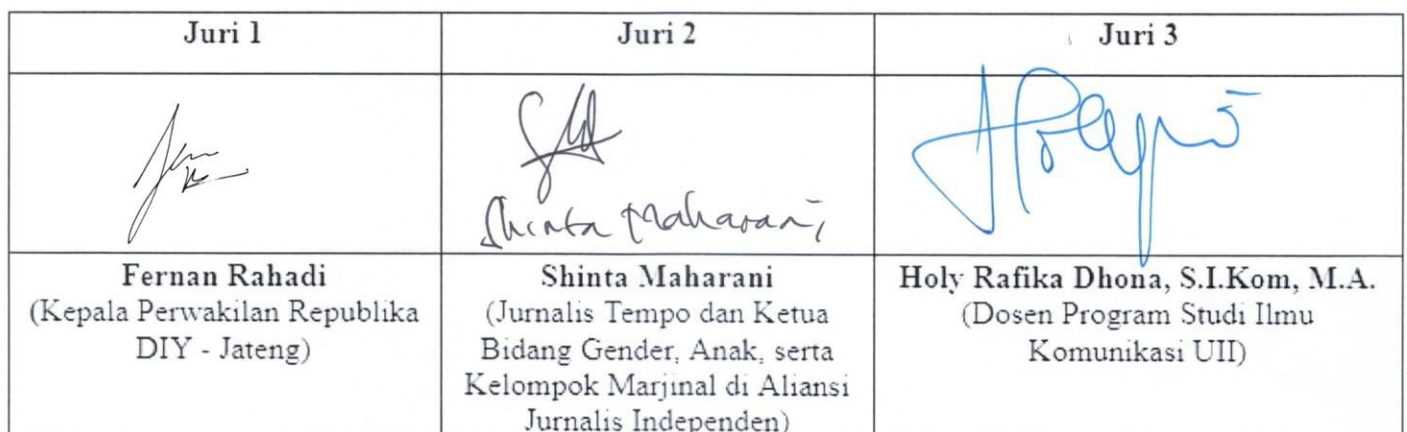 Juri 1
Juri 2
Juri 3
Shinta Maharani
Fernan Rahadi
(Kepala Perwakilan Republika
DIY - Jateng)
Shinta Maharani
(Jurnalis Tempo dan Ketua
Bidang Gender, Anak, serta
Kelompok Marjinal di Aliansi
Jurnalis Independen)
Holy Rafika Dhona, S.I.Kom, M.A.
(Dosen Program Studi Ilmu
Komunikasi UII)